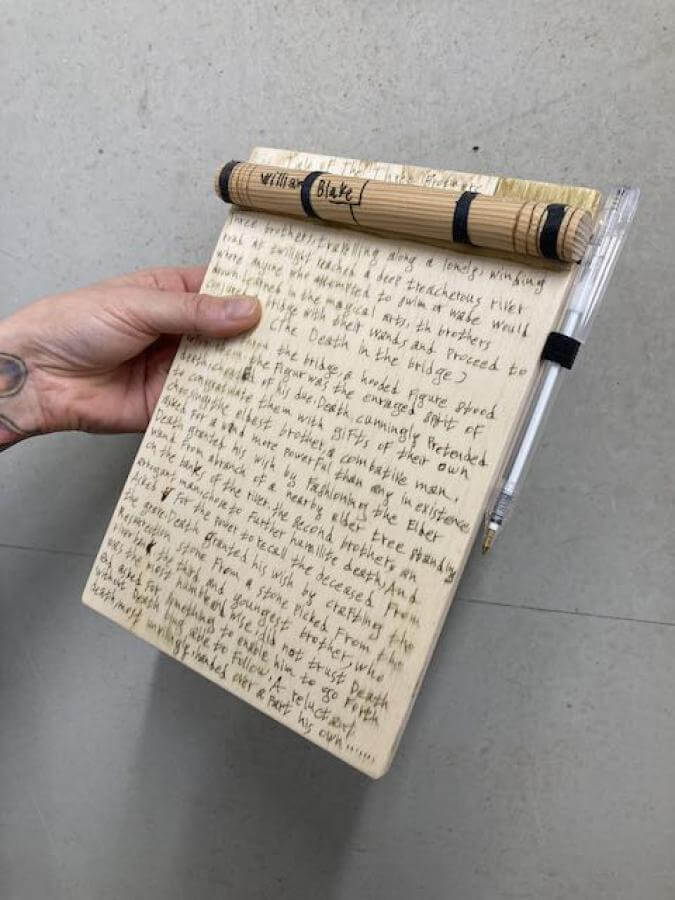 Tale of the Three Brothers
William Blake
Three brothers, travelling along a lonely, winding
road at twilight reached a deep treacherous river
where anyone who attempted to swim or wade would
drown. Learned in the magical arts, th brothers
conjured bridge with their wands and proceed to
(The Death in the bridge)
the bridge, a hooded figure stood
the figur was the enraged spirit of
death, of his due. Death cunningly pretended
to congratulate them with gifts of their own
choosing. the eldest brother, a combatlie man,
asked for a wand more powerful than any in existence
Death granted his wish by fashioning the Elder
wand from a branch of a nearby elder tree standing
on the banks of the river. the second brother, an
arrogant man, chose to further humilite death, And
Asked for the power to recall the deceased from
the grave. Death granted his wish by crafting the
resurrection stone from a stone picked from the
riverbed, the third and youngest brother, who
was the most humble wise did not trust Death
and asked for something to enable him to go forth
without Death being able to follow. A reluctant
death, most unwillingly, handed over a part his own......